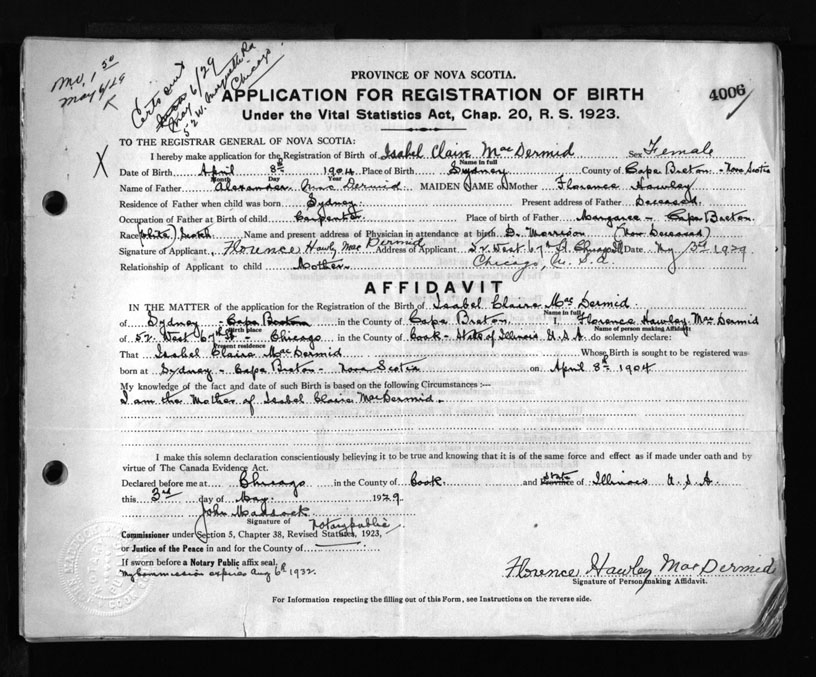 M.O. 1 50
May 6/29
Certs sent
May 6/29
52 W.
Chicago
PROVINCE OF NOVA SCOTIA.
APPLICATION FOR REGISTRATION OF BIRTH
4006
Under the Vital Statistics Act, Chap. 20, R. S. 1923.
TO THE REGISTRAR GENERAL OF NOVA SCOTIA:
X
I hereby make application for the Registration of Birth of Isabel Claire MacDermid Sex Female
Name in full
Date of Birth April 8th 1904 Place of Birth Sydney County of Cape Breton - Nova Scotia
Month Day Year
Name of Father Alexander MacDermid MAIDEN NAME of Mother Florence Hawley
Residence of Father when child was born Sydney Present address of Father Deceased
Occupation of Father at Birth of child Carpenter Place of Birth of Father Margaree - Cape Breton
Race (White) Scotch Name and present address of Physician in attendance at birth Dr. Morrison (Now Deceased)
Signature of Applicant Florence Hawley MacDermid Address of Applicant 52 West 67th St. Chicago Ill Date May 3rd 1929
Relationship of Applicant to child Mother Chicago, U. S. A.
AFFIDAVIT
IN THE MATTER of the application for the Registration of the Birth of Isabel Claire MacDermid
Name in full
of Sydney - Cape Breton in the County of Cape Breton I, Florence Hawley MacDermid
Birth place Name of person making Affidavit
of 52 West 67th St - Chicago in the County of Cook - State of Illinois U.S.A. do solemnly declare:
Present residence
That Isabel Claire MacDermid Whose Birth is sought to be registered was
born at Sydney - Cape Breton - Nova Scotia on April 8th 1904
My knowledge of the fact and date of such Birth is based on the following Circumstances :—
I am the Mother of Isabel Claire MacDermid
I make this solemn declaration conscientiously believing it to be true and knowing that it is of the same force and effect as if made under oath and by
virtue of The Canada Evidence Act.
Declared before me at Chicago in the County of Cook and State Province of Illinois U.S.A.
this 3rd day of May 1929
John Maddock
Signature of Notary public
Commissioner under Section 5, Chapter 38, Revised Statutes, 1923,
or Justice of the Peace in and for the County of
If sworn before a Notary Public affix seal.
My Commission expires Aug 6th 1932.
Florence Hawley MacDermid
Signature of Person making Affidavit.
For Information respecting the filling out of this Form, see Instructions on the reverse side.